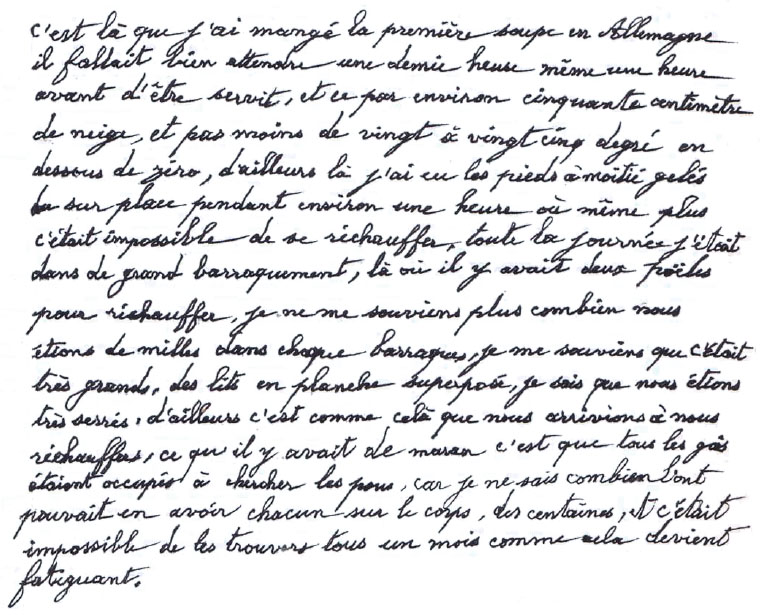 c'est là que j'ai mangé la première soupe en Allemagne
il fallait bien attendre une demie heure même une heure
avant d'être servit, et ce par environ cinquante centimètre
de neige, et pas moins de vingt à vingt cinq degré en
dessous de zéro, d'ailleurs là j'ai eu les pieds à moitié gelés
sur place pendant environ une heure où même plus
c'était impossible de se réchauffer, toute la journée j'était
dans de grand barraquement, là où il y avait deux poëles
pour réchauffer, je ne me souviens plus combien nous
étions de milles dans chaque barraques, je me souviens que c'était
très grands, des lits en planche superposé, je sais que nous étions
très serrés, d'ailleurs c'est comme celà que nous arrivions à nous
réchauffer, ce qu'il y avait de maran c'est que tous les gas
étaient occupés à chercher les pous, car je ne sais combien l'ont
pouvait en avoir chacun sur le corps, des centaines, et c'était
impossible de les trouvers tous un mois comme cela devient
fatiguant.